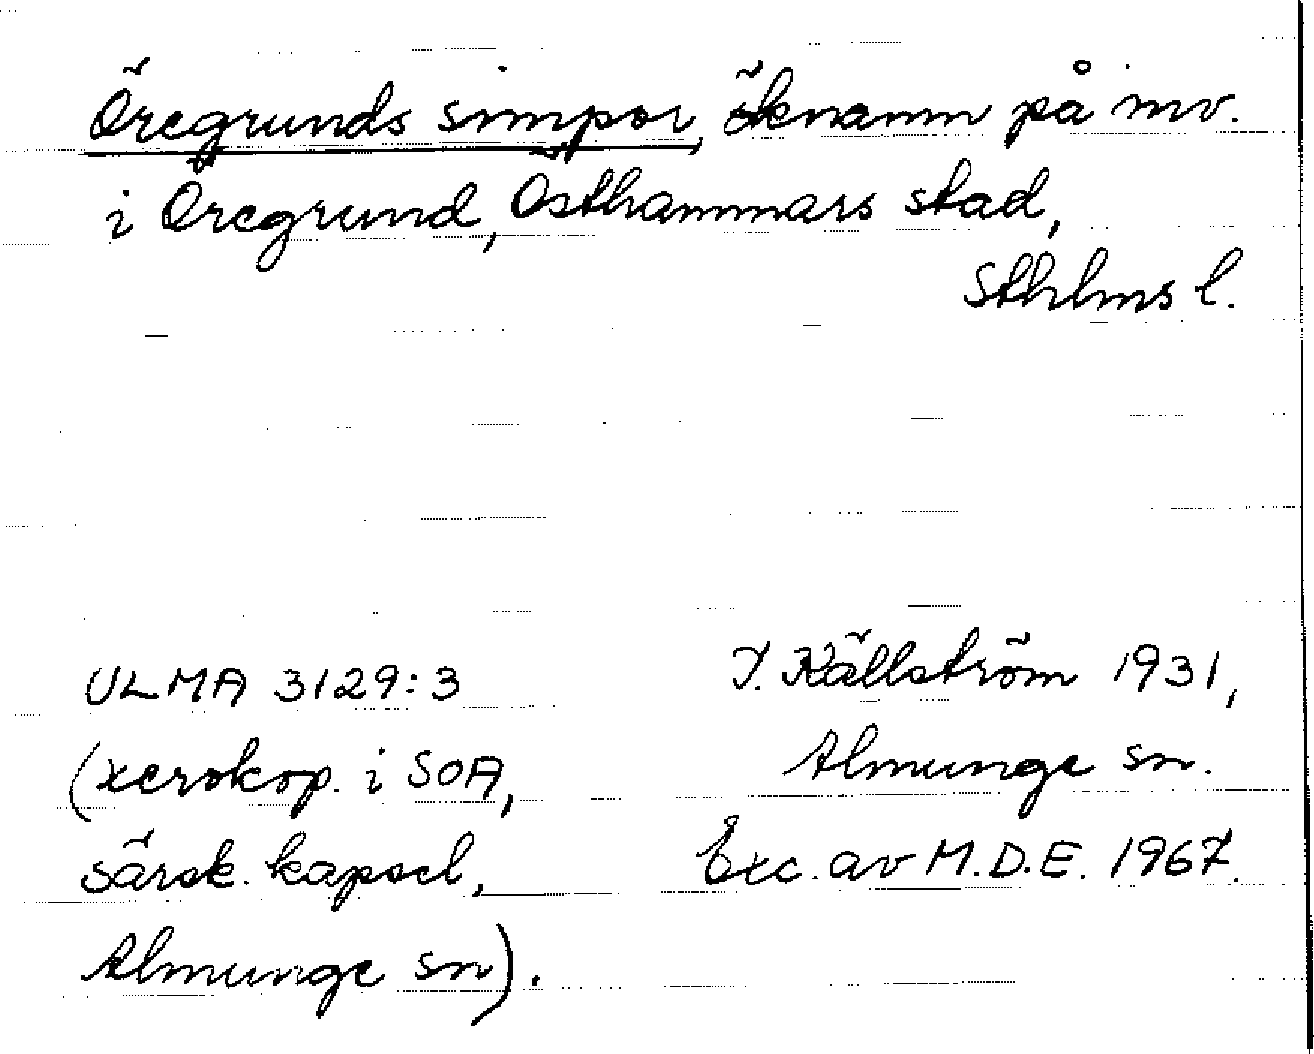 Öregrunds simpor, öknamn på inv.
i Öregrund, Östhammars stad,
Sthlms l.
ULMA 3129:3
(xerokop. i SOA,
särsk. kapsel,
Almunge sn).
Y. Källström 1931,
Almunge sn.
Exc. av M.D.E. 1967.